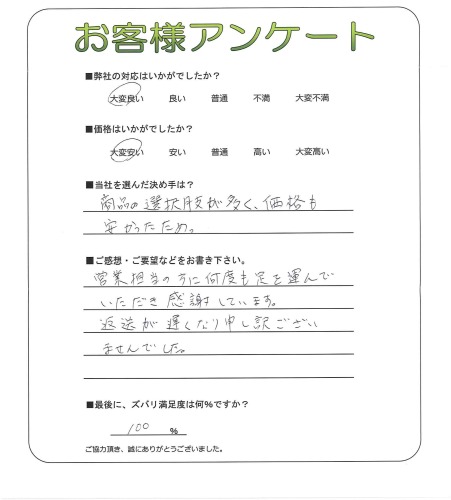 お客様アンケート
■弊社の対応はいかがでしたか？
大変良い　良い　普通　不満　大変不満
■価格はいかがでしたか？
大変安い　安い　普通　高い　大変高い
■当社を選んだ決め手は？
商品の選択肢が多く、価格も
安かったため。
■ご感想・ご要望などをお書き下さい。
営業担当の方に何度も足を運んで
いただき感謝しています。
返送が遅くなり申し訳ござい
ませんでした。
■最後に、ズバリ満足度は何%ですか？
100 %
ご協力頂き、誠にありがとうございました。